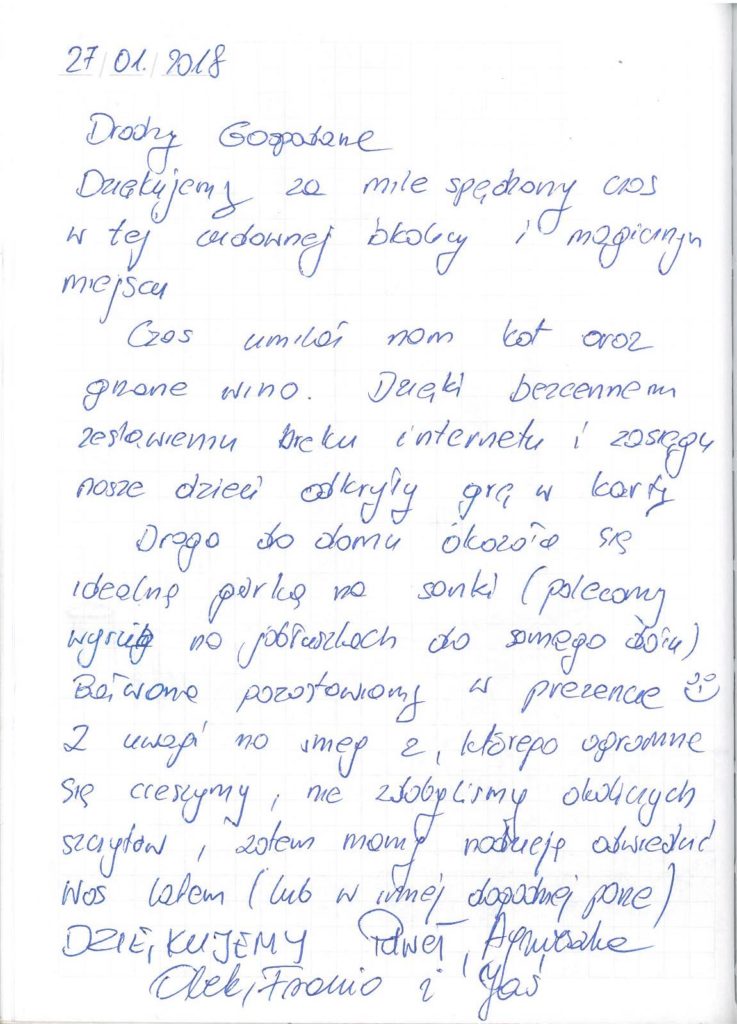 27/01/2018
Drodzy Gospodarze
Dziękujemy za mile spędzony czas
w tej cudownej okolicy i magicznym
miejscu
Czas umilał nam kot oraz
grzane wino. Dzięki bezcennemu
zestawieniu braku internetu i zasięgu
nasze dzieci odkryły grę w karty
Droga do domu okazała się
idealną górką na sanki (polecamy
na jabłuszkach do samego dołu)
Bałwana pozostawiamy w prezencie
Z uwagi na śnieg z, którego ogromne
się cieszymy, nie zdobyliśmy okolicznych
szczytów, zatem mamy nadzieję odwiedzić
Was latem (lub w innej dogodnej porze)
DZIĘKUJEMY Paweł, Agnieszka
Olek, Franio i Jaś